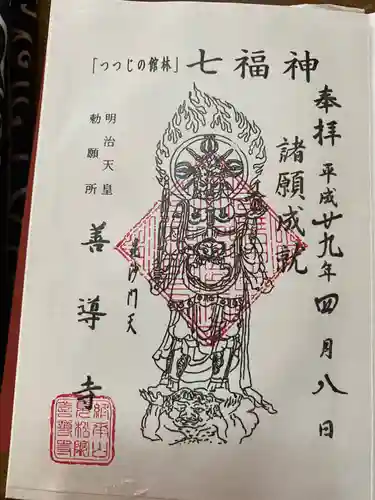 「つつじの館林」七福神
奉拝 平成廿九年四月八日
諸願成就
毘沙門天
明治天皇
勅願所
善導寺